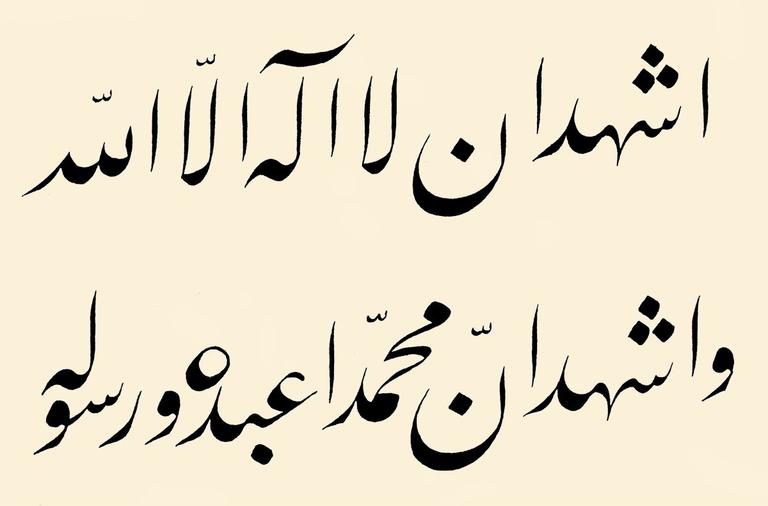 اشهد ان لا اله الّا اللّه
و اشهد انّ محمّدا عبده و رسوله